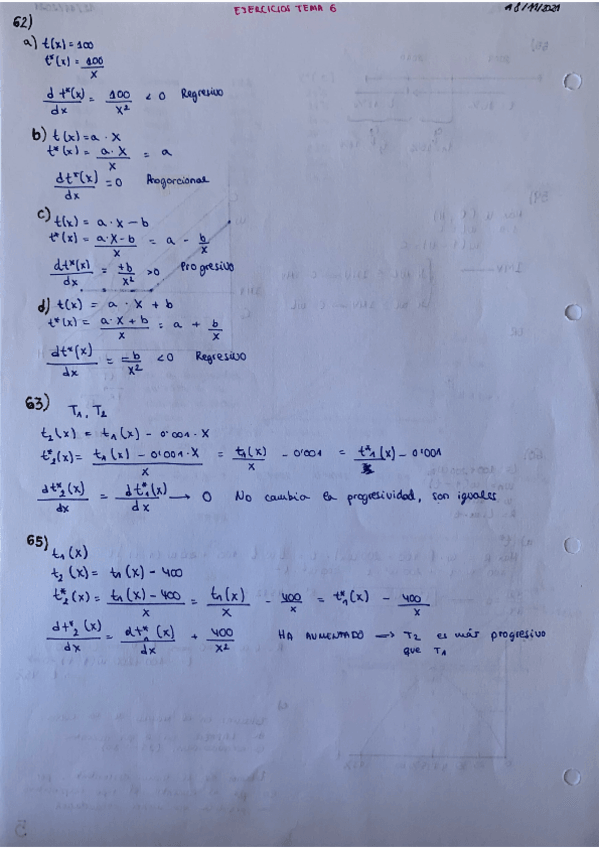 EJERCICIOS TEMA 6
18/11/2021
62)
a) t(x) = 100
t*(x) = 100/x
d t*(x)/dx = 100/x² < 0 Regresivo
b) t(x) = a · x
t*(x) = a · x/x = a
dt*(x)/dx = 0 Proporcional
c) t(x) = a · x − b
t*(x) = a · x − b/x = a − b/x
dt*(x)/dx = +b/x² > 0 Progresivo
d) t(x) = a · x + b
t*(x) = a · x + b/x = a + b/x
dt*(x)/dx = −b/x² < 0 Regresivo
63) T1, T2
t2(x) = t1(x) − 0'001 · x
t*2(x) = t1(x) − 0'001 · x/x = t1(x)/x − 0'001 = t*1(x) − 0'001
dt*2(x)/dx = dt*1(x)/dx → 0 No cambia la progresividad, son iguales
65) t1(x)
t2(x) = t1(x) − 400
t*2(x) = t1(x) − 400/x = t1(x)/x − 400/x = t*1(x) − 400/x
dt*2(x)/dx = dt*1(x)/dx + 400/x² HA AUMENTADO → T2 es más progresivo
que T1